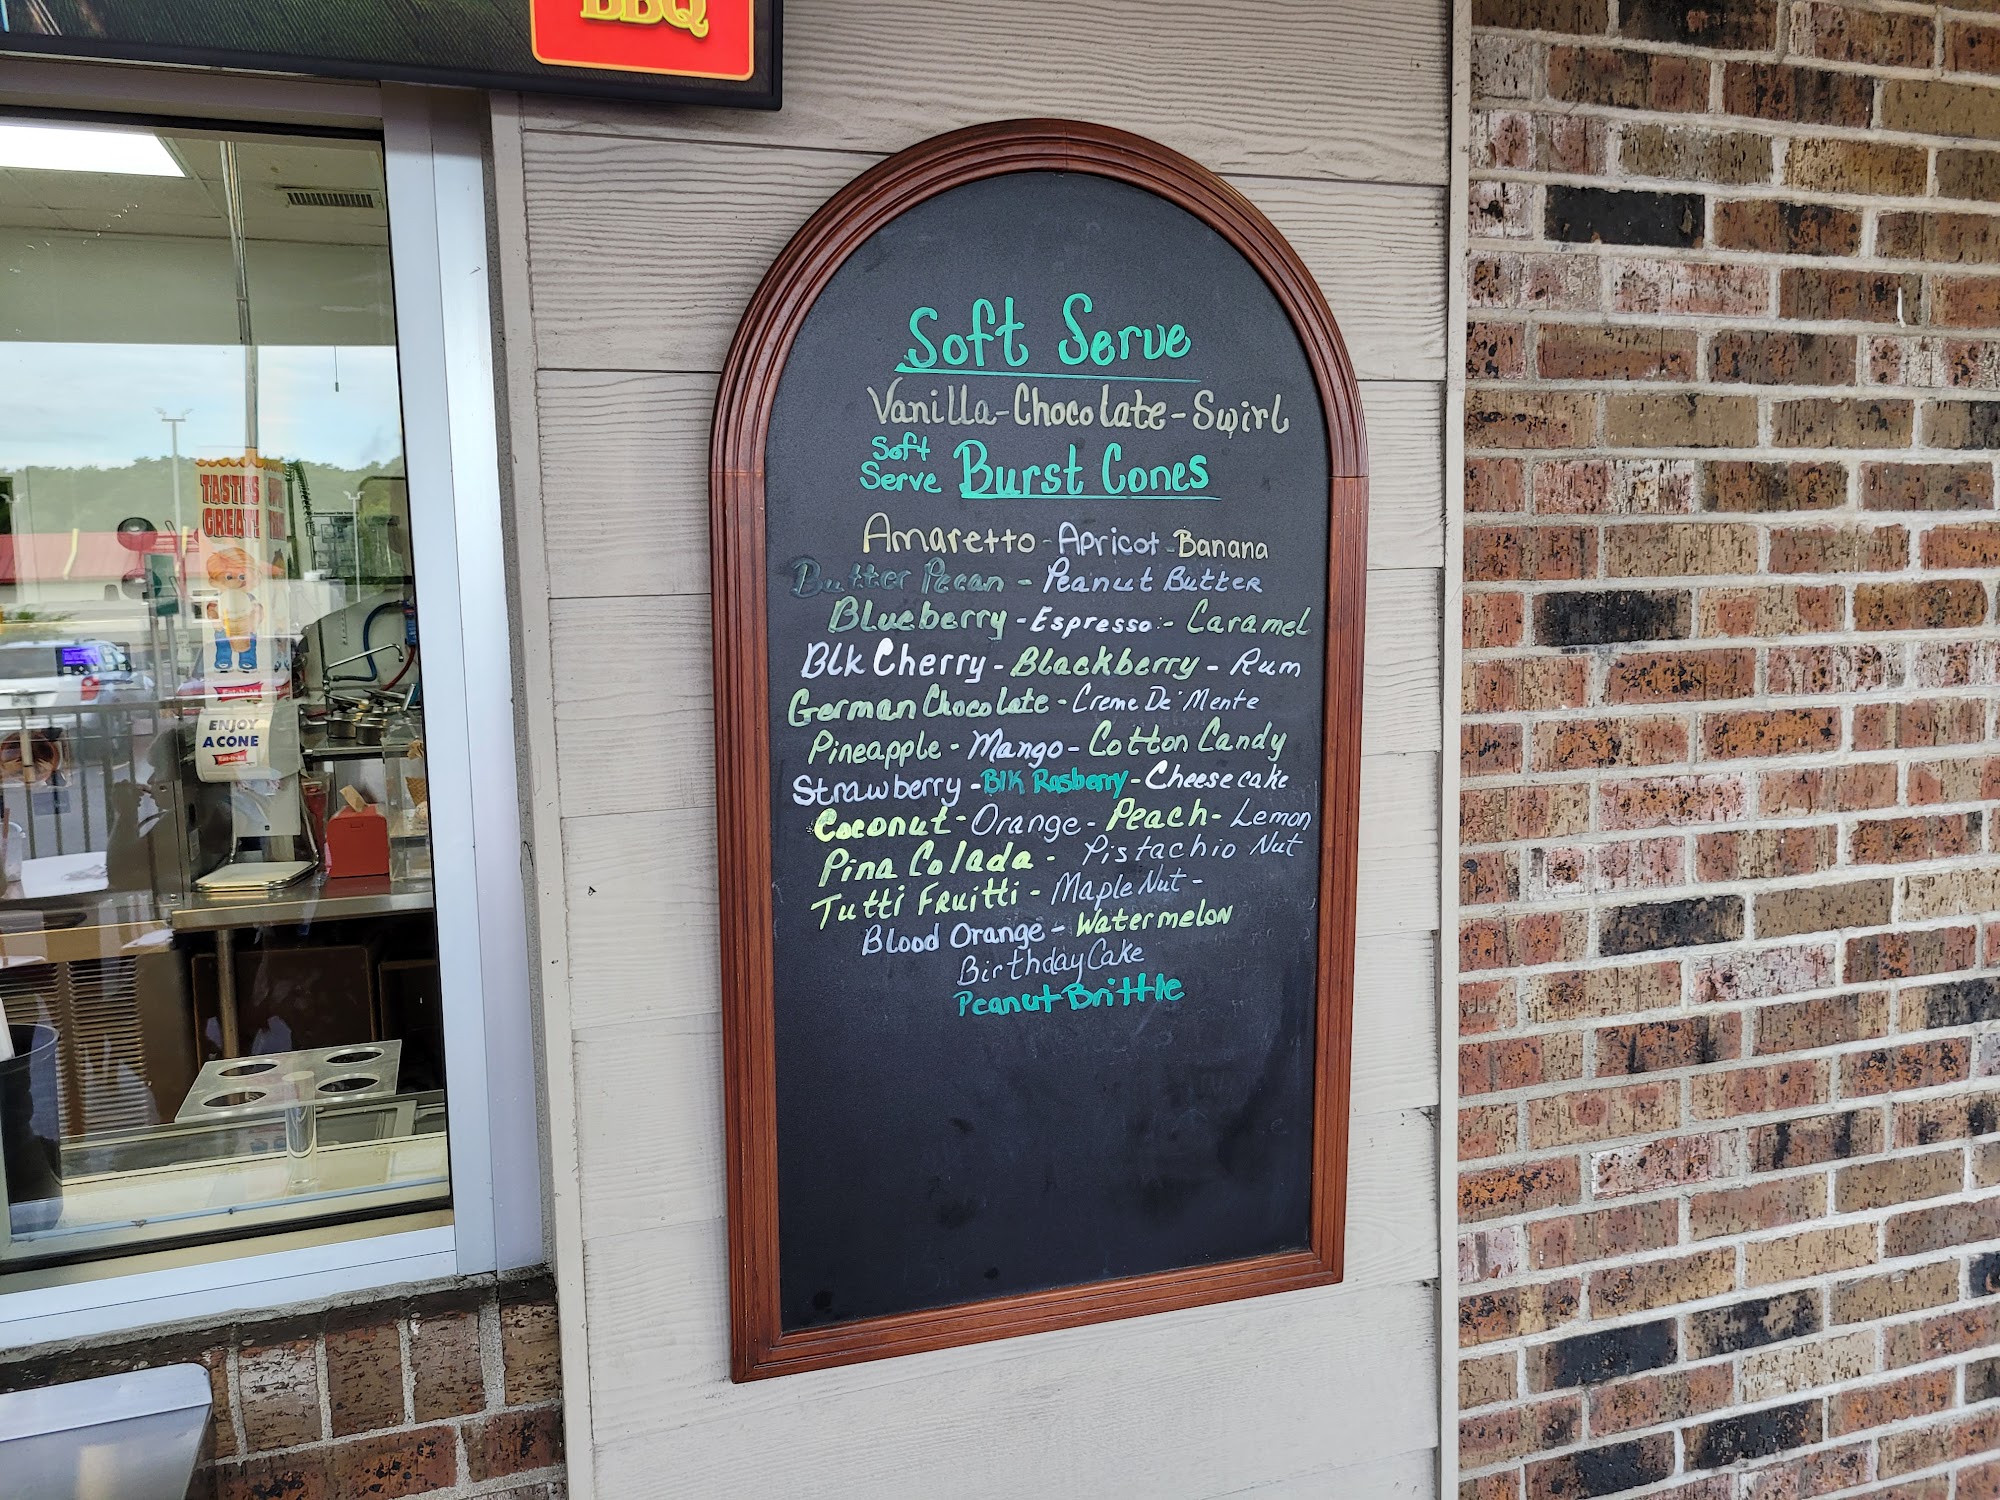 BBQ
TASTES
GREAT!
ENJOY
A CONE
Eat-It-All
Soft Serve
Vanilla-Chocolate-Swirl
Soft
Serve Burst Cones
Amaretto - Apricot - Banana
Butter Pecan - Peanut Butter
Blueberry - Espresso - Caramel
Blk Cherry - Blackberry - Rum
German Chocolate - Creme De' Mente
Pineapple - Mango - Cotton Candy
Strawberry - Blk Rasberry - Cheese cake
Coconut - Orange - Peach - Lemon
Pina Colada - Pistachio Nut
Tutti Fruitti - Maple Nut -
Blood Orange - Watermelon
Birthday Cake
Peanut Brittle